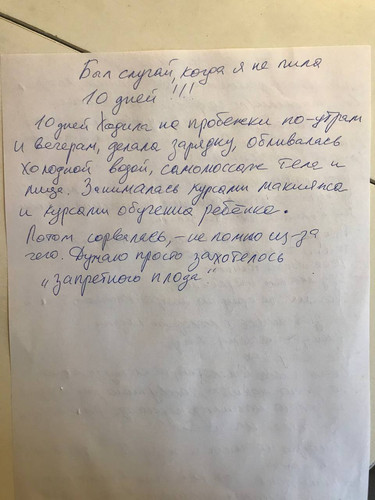 Был случай, когда я не пила
10 дней!!!
10 дней ходила на пробежки по-утрам
и вечерам, делала зарядку, обливалась
холодной водой, самомоссаж тела и
лица. Занималась курсами макияжа
и курсами обучения ребёнка.
Потом сорвалась, - не помню из-за
чего. Думаю просто захотелось
„запретного плода"